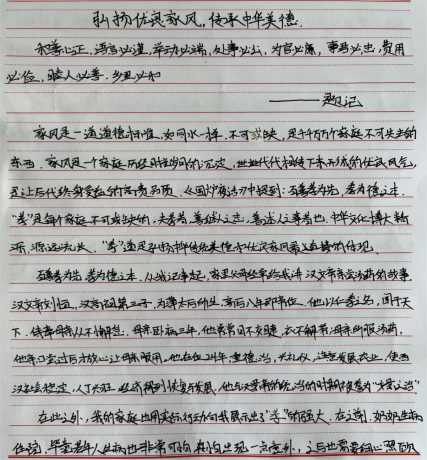 弘扬优良家风，传承中华美德
心正，语言必谨，举动必端，处事必公，为官必廉，事君必忠，费用
必俭，睦人必善，乡里必和
——题记
家风是一道道德标准，如同水一样，不可或缺，是千千万万个家庭不可失去的
东西，家风是一个家庭历经时间的沉淀，世世代代相传下来形成的优良风气，
是让后代终身受益的高贵品质，《围炉夜话》中提到：百善孝为先，孝为德之本，
“孝”是每个家庭不可或缺的，夫孝者，善继人之志，善述人之事者也，中华文化博大精
深，源远流长，“孝”道是弘扬中华传统美德和优良家风最直接的体现。
百善孝为先，孝为德之本，从我记事起，家里父母经常给我讲汉文帝亲尝汤药的故事
汉文帝刘恒，汉高祖第三子，为薄太后所生，高后八年即帝位，他以仁孝之名，闻于天
下，侍奉母亲从不懈怠，母亲卧病三年，他常常目不交睫，衣不解带；母亲所服汤药，
他亲口尝过后才放心让母亲服用，他在位24年，重德治，兴礼仪，注意发展农业，使西
汉社会稳定，人丁兴旺，经济得到恢复与发展，他与汉景帝的统治时期被誉为“文景之治”
在此之外，我的家庭也用实际行动向我展示出了“孝”的强大，在之前，奶奶生病
住院，毕竟老年人生病也非常可怕，真怕出现一点意外，之后也需要细心照顾